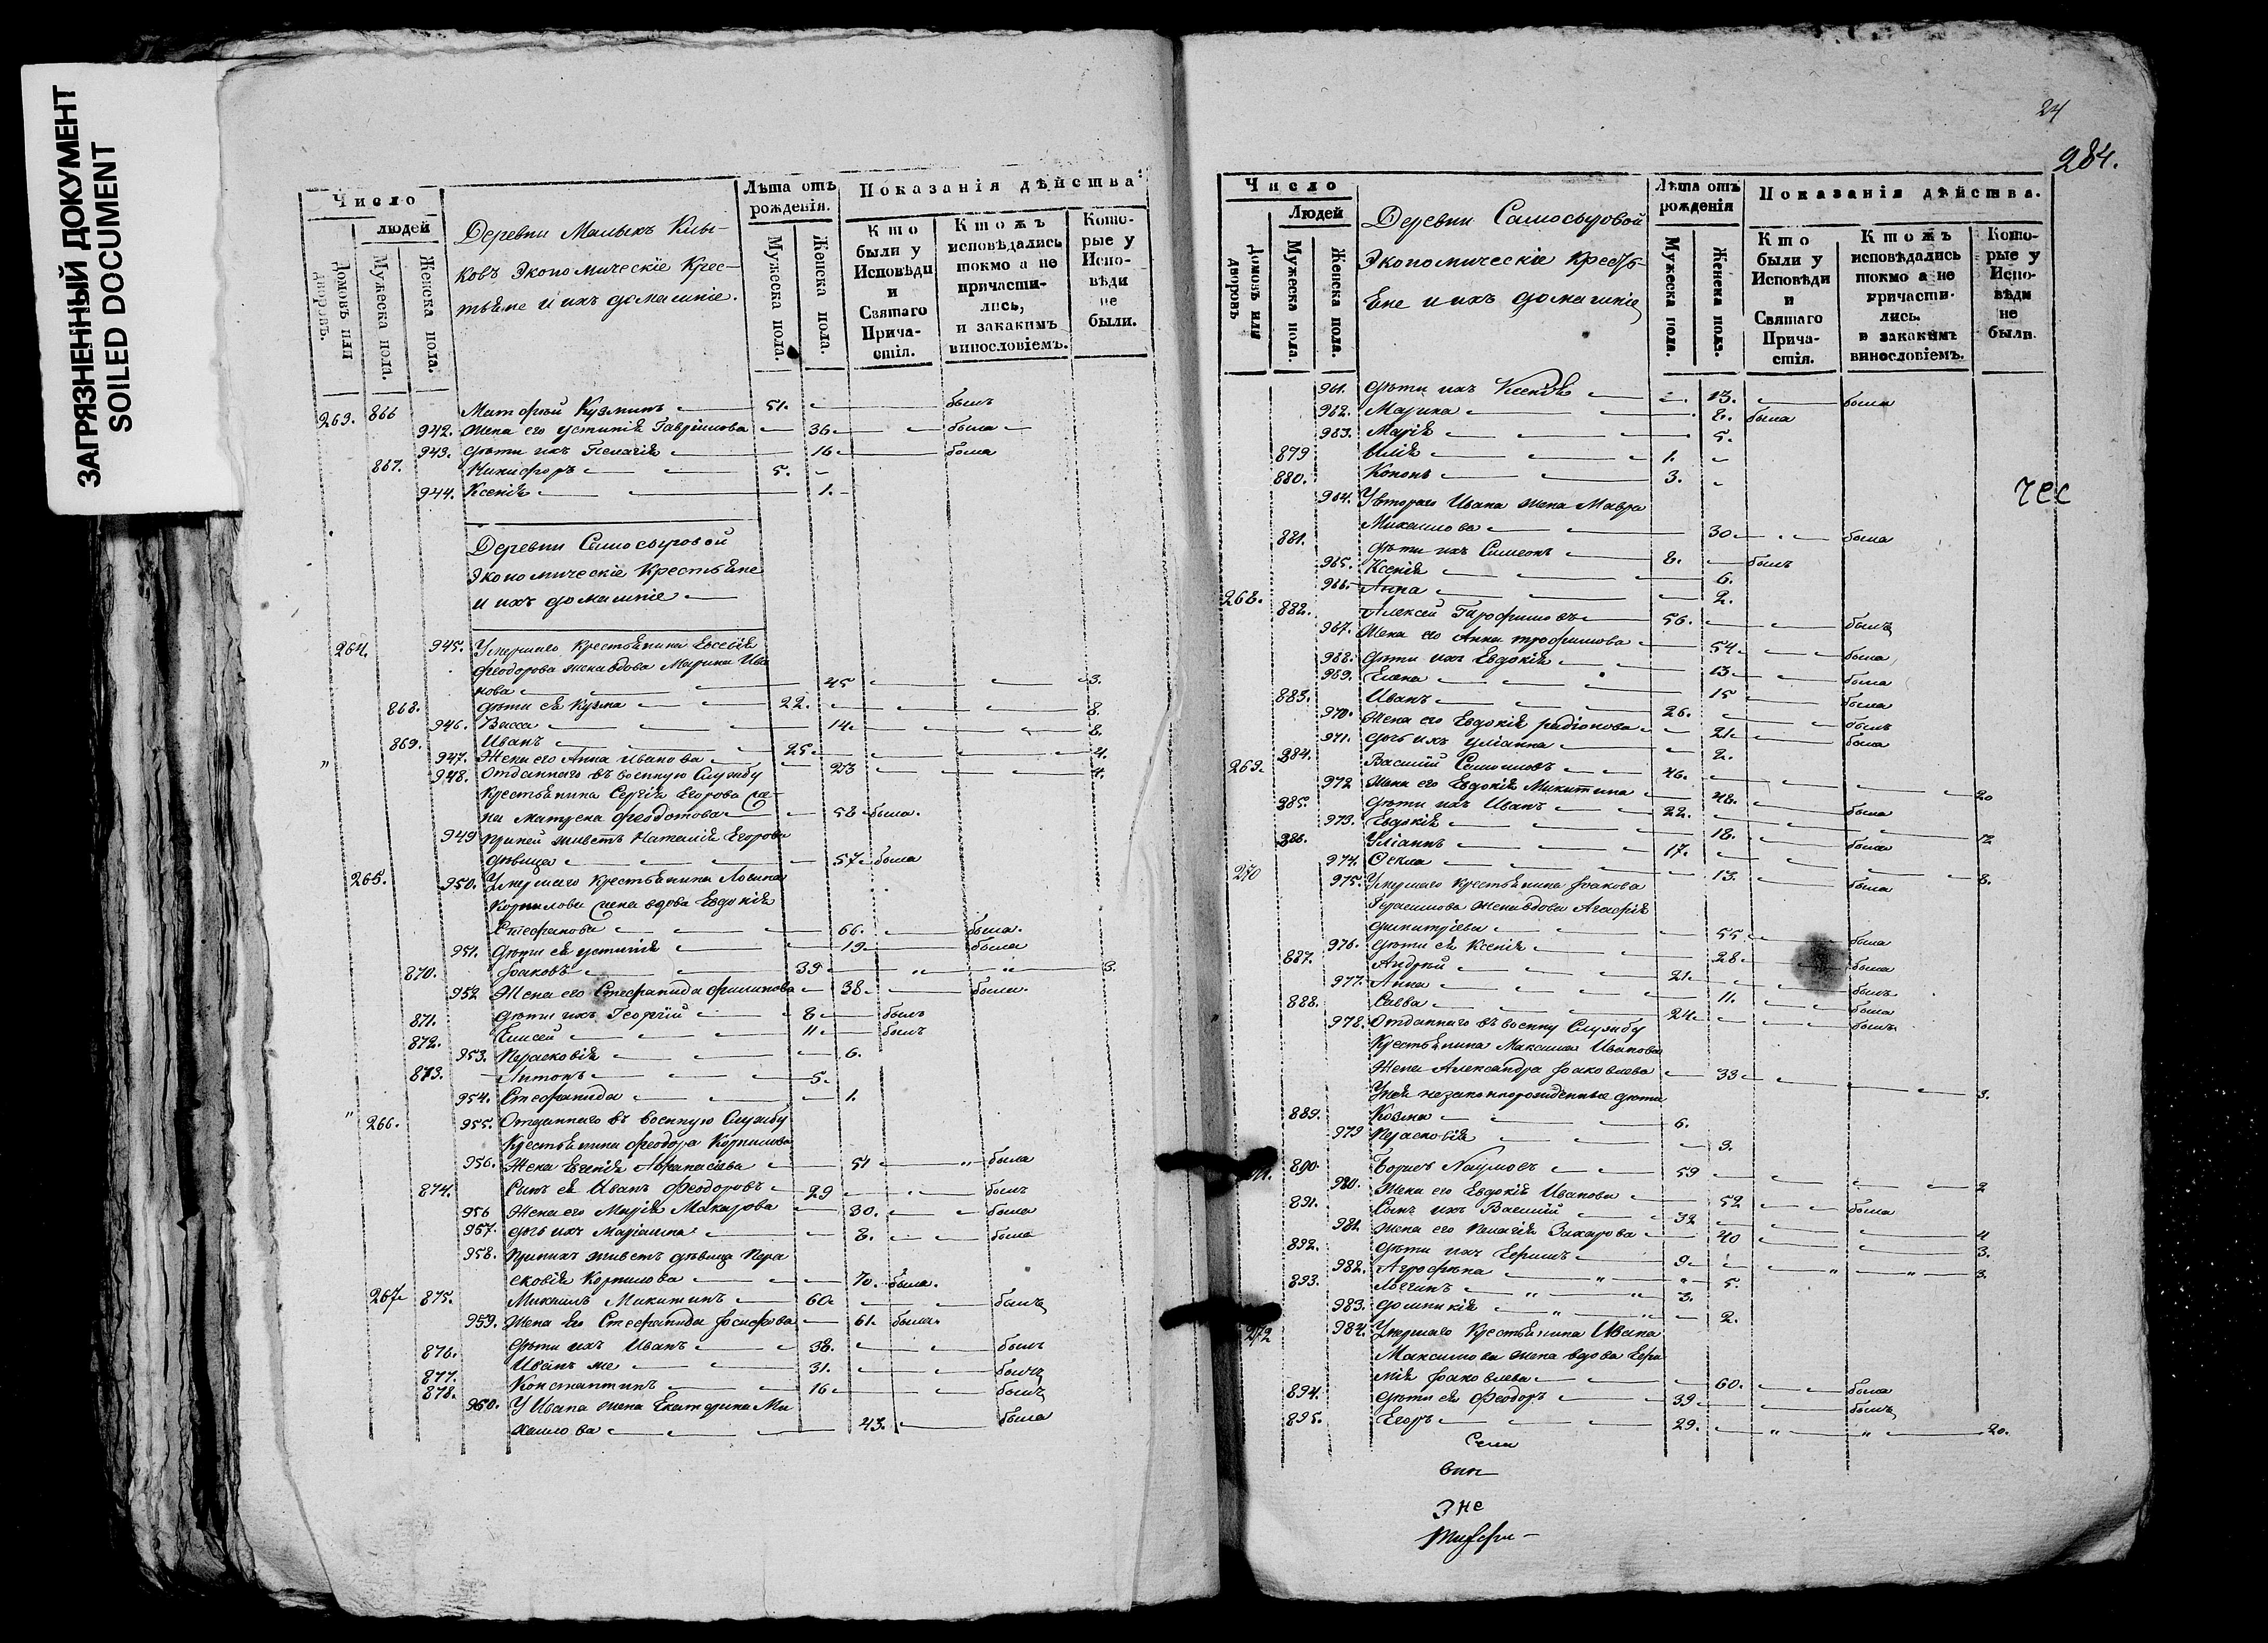 ЗАГРЯЗНЕННЫЙ ДОКУМЕНТ
SOILED DOCUMENT
Число
людей
Домовъ или дворовъ.
Мужеска пола.
Женска пола.
Деревни Малыхъ Клы-
ковъ Экономическіе Крес-
тьяне и ихъ домашніе.
Лѣта отъ рожденія.
Мужеска пола.
Женска пола.
Показанія дѣйства.
Кто были у Исповѣди и Святаго Прича-стія.
Ктожъ исповѣдались токмо а не причасти-лись, и закакимъ винословіемъ.
Кото-рые у Испо-вѣди не были.
263. 866 Матфей Кузминъ 51. былъ
942. Жена его Устинія Гаврилова 36 была
943. Дѣти ихъ Пелагія 16 была
867. Никифоръ 5.
944. Ксенія 1.
Деревни Самосыровой
Экономическіе Крестьяне
и ихъ домашніе
264. 945. Умершаго крестьянина Евсевія
Феодорова жена вдова Марина Ива
нова 45 3.
868. дѣти ея Кузма 22. 8.
946. Васса 14. 8.
869. Иванъ 25. 4.
947. Жена его Анна Иванова 23 4.
948. Отданнаго въ военную Службу
Крестьянина Сергія Егорова же-
на Матрена Феодотова 58 была.
949 При ней живетъ Наталія Егорова
дѣвица 57. была
265. 950. Умершаго крестьянина Логина
Корнилова жена вдова Евдокія
Стефанова 66. была.
951. Дѣти ея Устинія 19 была
870. Іоаковъ 39 3.
952 Жена его Стефанида Филипова 38. была.
871. дѣти ихъ Георгій 8 былъ
872. Елисей 11 былъ
953. Парасковія 6.
873. Антонъ 5.
954. Стефанида 1.
266. 955. Отданнаго въ военную Службу
Крестьянина Феодора Корнилова
956. Жена Евгенія Афанасіева 51 была
874. Сынъ ея Иванъ Феодоровъ 29 былъ
956 Жена его Марія Макарова 30. была
957. дочь ихъ Маріамна 8. была
958. При нихъ живетъ дѣвица Пара
сковія Корнилова 70. была.
267 875. Михаилъ Никитинъ 60. былъ
959. Жена его Стефанида Іосифова 61. была.
876. Дѣти ихъ Иванъ 38. былъ
877. Иванъ же 31. былъ
878. Константинъ 16 былъ
960. У Ивана жена Екатерина Ми
хаилова 43. была
24
284.
Число
Людей
Домовъ или дворовъ
Мужеска пола.
Женска пола.
Деревни Самосыровой
Экономическіе Кресть-
яне и ихъ домашніе
Лѣта отъ рожденія
Мужеска пола.
Женска пола.
Показанія дѣйства.
Кто были у Исповѣди и Святаго Прича-стія.
Ктожъ исповѣдались токмо а не причасти-лись. и закакимъ винословіемъ.
Кото-рые у Испо-вѣди не были.
961. дѣти ихъ Ксенія 13. была
962. Марина 8. была
963. Марія 5.
879 Илія 1.
880. Кононъ 3.
чес
964. У втораго Ивана жена Мавра
Михаилова 30 была
881. дѣти ихъ Симеонъ 8. былъ
965. Ксенія 6.
966. Анна 2.
268. 882. Алексей Трофимовъ 56. былъ
967. Жена его Анна Трофимова 54 была
968. Дѣти ихъ Евдокія 13 была
969. Елена 15 была
883. Иванъ 26. былъ
970. Жена его Евдокія Радіонова 21 была
971. дочь ихъ Уліанна 2.
269. 884. Василій Самоиловъ 46. 20
972 Жена его Евдокія Никитина 48. была
885. Дѣти ихъ Иванъ 22. 12
973. Евдокія 18. была
886. Уліанъ 17. 8.
974. Фекла 13. была
270 975. Умершаго Крестьянина Іоакова
Герасимова жена вдова Агафія
Димитріева 55 была
976. Дѣти ея Ксенія 28 была
887. Андрей 21. былъ
977. Анна 11. была
888. Савва 24 былъ
978. Отданнаго въ военну Службу
Крестьянина Максима Иванова
Жена Александра Іоаковлева 33 3.
У нея незаконнорожденные дѣти
889. Козма 6.
979 Параскевія 3.
271. 890. Борисъ Наумовъ 59 2
980. Жена его Евдокія Иванова 52 была
891. Сынъ ихъ Василій 32 4
981. Жена его Пелагія Захарова 40 3.
892. Дѣти ихъ Ефимъ 9 3.
982. Агрофѣна 5.
893. Логгинъ 3.
983. Домникія 2.
272 984. Умершаго Крестьянина Ивана
Максимова жена вдова Евфи
мія Іоаковлева 60. была
894. дѣти ея Феодоръ 39 былъ
895. Егоръ 29. 20.